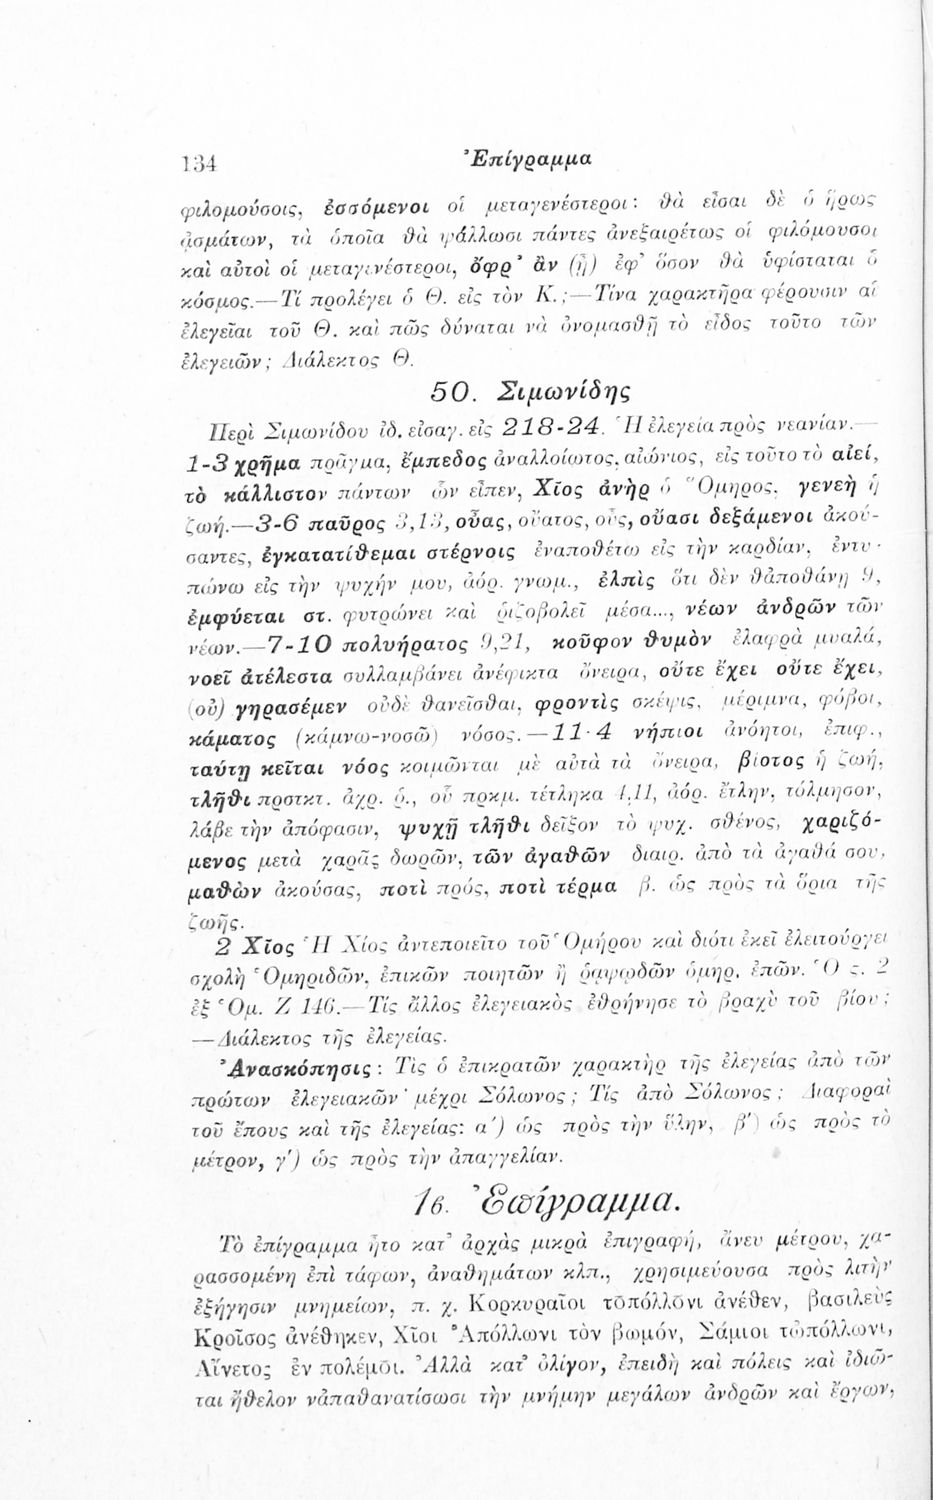 134
Ἐπίγραμμα
φιλομούσοις, ἐσσόμενοι οἱ μεταγενέστεροι: θὰ εἶσαι δὲ ὁ ἥρως
ᾀσμάτων, τὰ ὁποῖα θὰ ψάλλωσι πάντες ἀνεξαιρέτως οἱ φιλόμουσοι
καὶ αὐτοὶ οἱ μεταγενέστεροι, ὄφρ’ ἂν (ᾖ) ἐφ’ ὅσον θὰ ὑφίσταται ὁ
κόσμος.— Τί προλέγει ὁ Θ. εἰς τὸν Κ.;—Τίνα χαρακτῆρα φέρουσιν αἱ
ἐλεγεῖαι τοῦ Θ. καὶ πῶς δύναται νὰ ὀνομασθῇ τὸ εἶδος τοῦτο τῶν
ἐλεγειῶν; Διάλεκτος Θ.
50. Σιμωνίδης
Περὶ Σιμωνίδου ἰδ. εἰσαγ. εἰς 218-24. Ἡ ἐλεγεία πρὸς νεανίαν.—
1-3 χρῆμα πρᾶγμα, ἔμπεδος ἀναλλοίωτος, αἰώνιος, εἰς τοῦτο τὸ αἰεί,
τὸ κάλλιστον πάντων ὧν εἶπεν, Χῖος ἀνὴρ ὁ Ὅμηρος, γενεὴ ἡ
ζωή.—3-6 παῦρος 3,13, οὖας, οὔατος, οὖς, οὔασι δεξάμενοι ἀκού-
σαντες, ἐγκατατίθεμαι στέρνοις ἐναποθέτω εἰς τὴν καρδίαν, ἐντυ-
πώνω εἰς τὴν ψυχήν μου, ἀόρ. γνωμ., ἐλπὶς ὅτι δὲν θἀποθάνῃ 9,
ἐμφύεται στ. φυτρώνει καὶ ῥιζοβολεῖ μέσα..., νέων ἀνδρῶν τῶν
νέων.—7-10 πολυήρατος 9,21, κοῦφον θυμὸν ἐλαφρὰ μυαλά,
νοεῖ ἀτέλεστα συλλαμβάνει ἀνέφικτα ὄνειρα, οὔτε ἔχει οὔτε ἔχει,
(οὐ) γηρασέμεν οὐδὲ θανεῖσθαι, φροντὶς σκέψις, μέριμνα, φόβοι,
κάματος (κάμνω-νοσῶ) νόσος.—11-4 νήπιοι ἀνόητοι, ἐπιφ.,
ταύτῃ κεῖται νόος κοιμῶνται μὲ αὐτὰ τὰ ὄνειρα, βίοτος ἡ ζωή,
τλῆθι προστκτ. ἀχρ. ῥ., οὗ πρκμ. τέτληκα 4,11, ἀόρ. ἔτλην, τόλμησον,
λάβε τὴν ἀπόφασιν, ψυχῇ τλῆθι δεῖξον τὸ ψυχ. σθένος, χαριζό-
μενος μετὰ χαρᾶς δωρῶν, τῶν ἀγαθῶν διαιρ. ἀπὸ τὰ ἀγαθά σου,
μαθὼν ἀκούσας, ποτὶ πρός, ποτὶ τέρμα β. ὡς πρὸς τὰ ὅρια τῆς
ζωῆς.
2 Χῖος Ἡ Χίος ἀντεποιεῖτο τοῦ Ὁμήρου καὶ διότι ἐκεῖ ἐλειτούργει
σχολὴ Ὁμηριδῶν, ἐπικῶν ποιητῶν ἢ ῥαψῳδῶν ὁμηρ. ἐπῶν. Ὁ ς. 2
ἐξ Ὁμ. Ζ 146.—Τίς ἄλλος ἐλεγειακὸς ἐθρήνησε τὸ βραχὺ τοῦ βίου;
—Διάλεκτος τῆς ἐλεγείας.
Ἀνασκόπησις: Τὶς ὁ ἐπικρατῶν χαρακτὴρ τῆς ἐλεγείας ἀπὸ τῶν
πρώτων ἐλεγειακῶν μέχρι Σόλωνος; Τίς ἀπὸ Σόλωνος; Διαφοραὶ
τοῦ ἔπους καὶ τῆς ἐλεγείας: α΄) ὡς πρὸς τὴν ὕλην, β΄) ὡς πρὸς τὸ
μέτρον, γ΄) ὡς πρὸς τὴν ἀπαγγελίαν.
1β. Ἐπίγραμμα.
Τὸ ἐπίγραμμα ἦτο κατ’ ἀρχὰς μικρὰ ἐπιγραφή, ἄνευ μέτρου, χα-
ρασσομένη ἐπὶ τάφων, ἀναθημάτων κλπ., χρησιμεύουσα πρὸς λιτὴν
ἐξήγησιν μνημείων, π. χ. Κορκυραῖοι τὀπόλλονι ἀνέθεν, βασιλεὺς
Κροῖσος ἀνέθηκεν, Χῖοι Ἀπόλλωνι τὸν βωμόν, Σάμιοι τὠπόλλωνι,
Αἴνετος ἐν πολέμοι. Ἀλλὰ κατ’ ὀλίγον, ἐπειδὴ καὶ πόλεις καὶ ἰδιῶ-
ται ἤθελον νἀπαθανατίσωσι τὴν μνήμην μεγάλων ἀνδρῶν καὶ ἔργων,